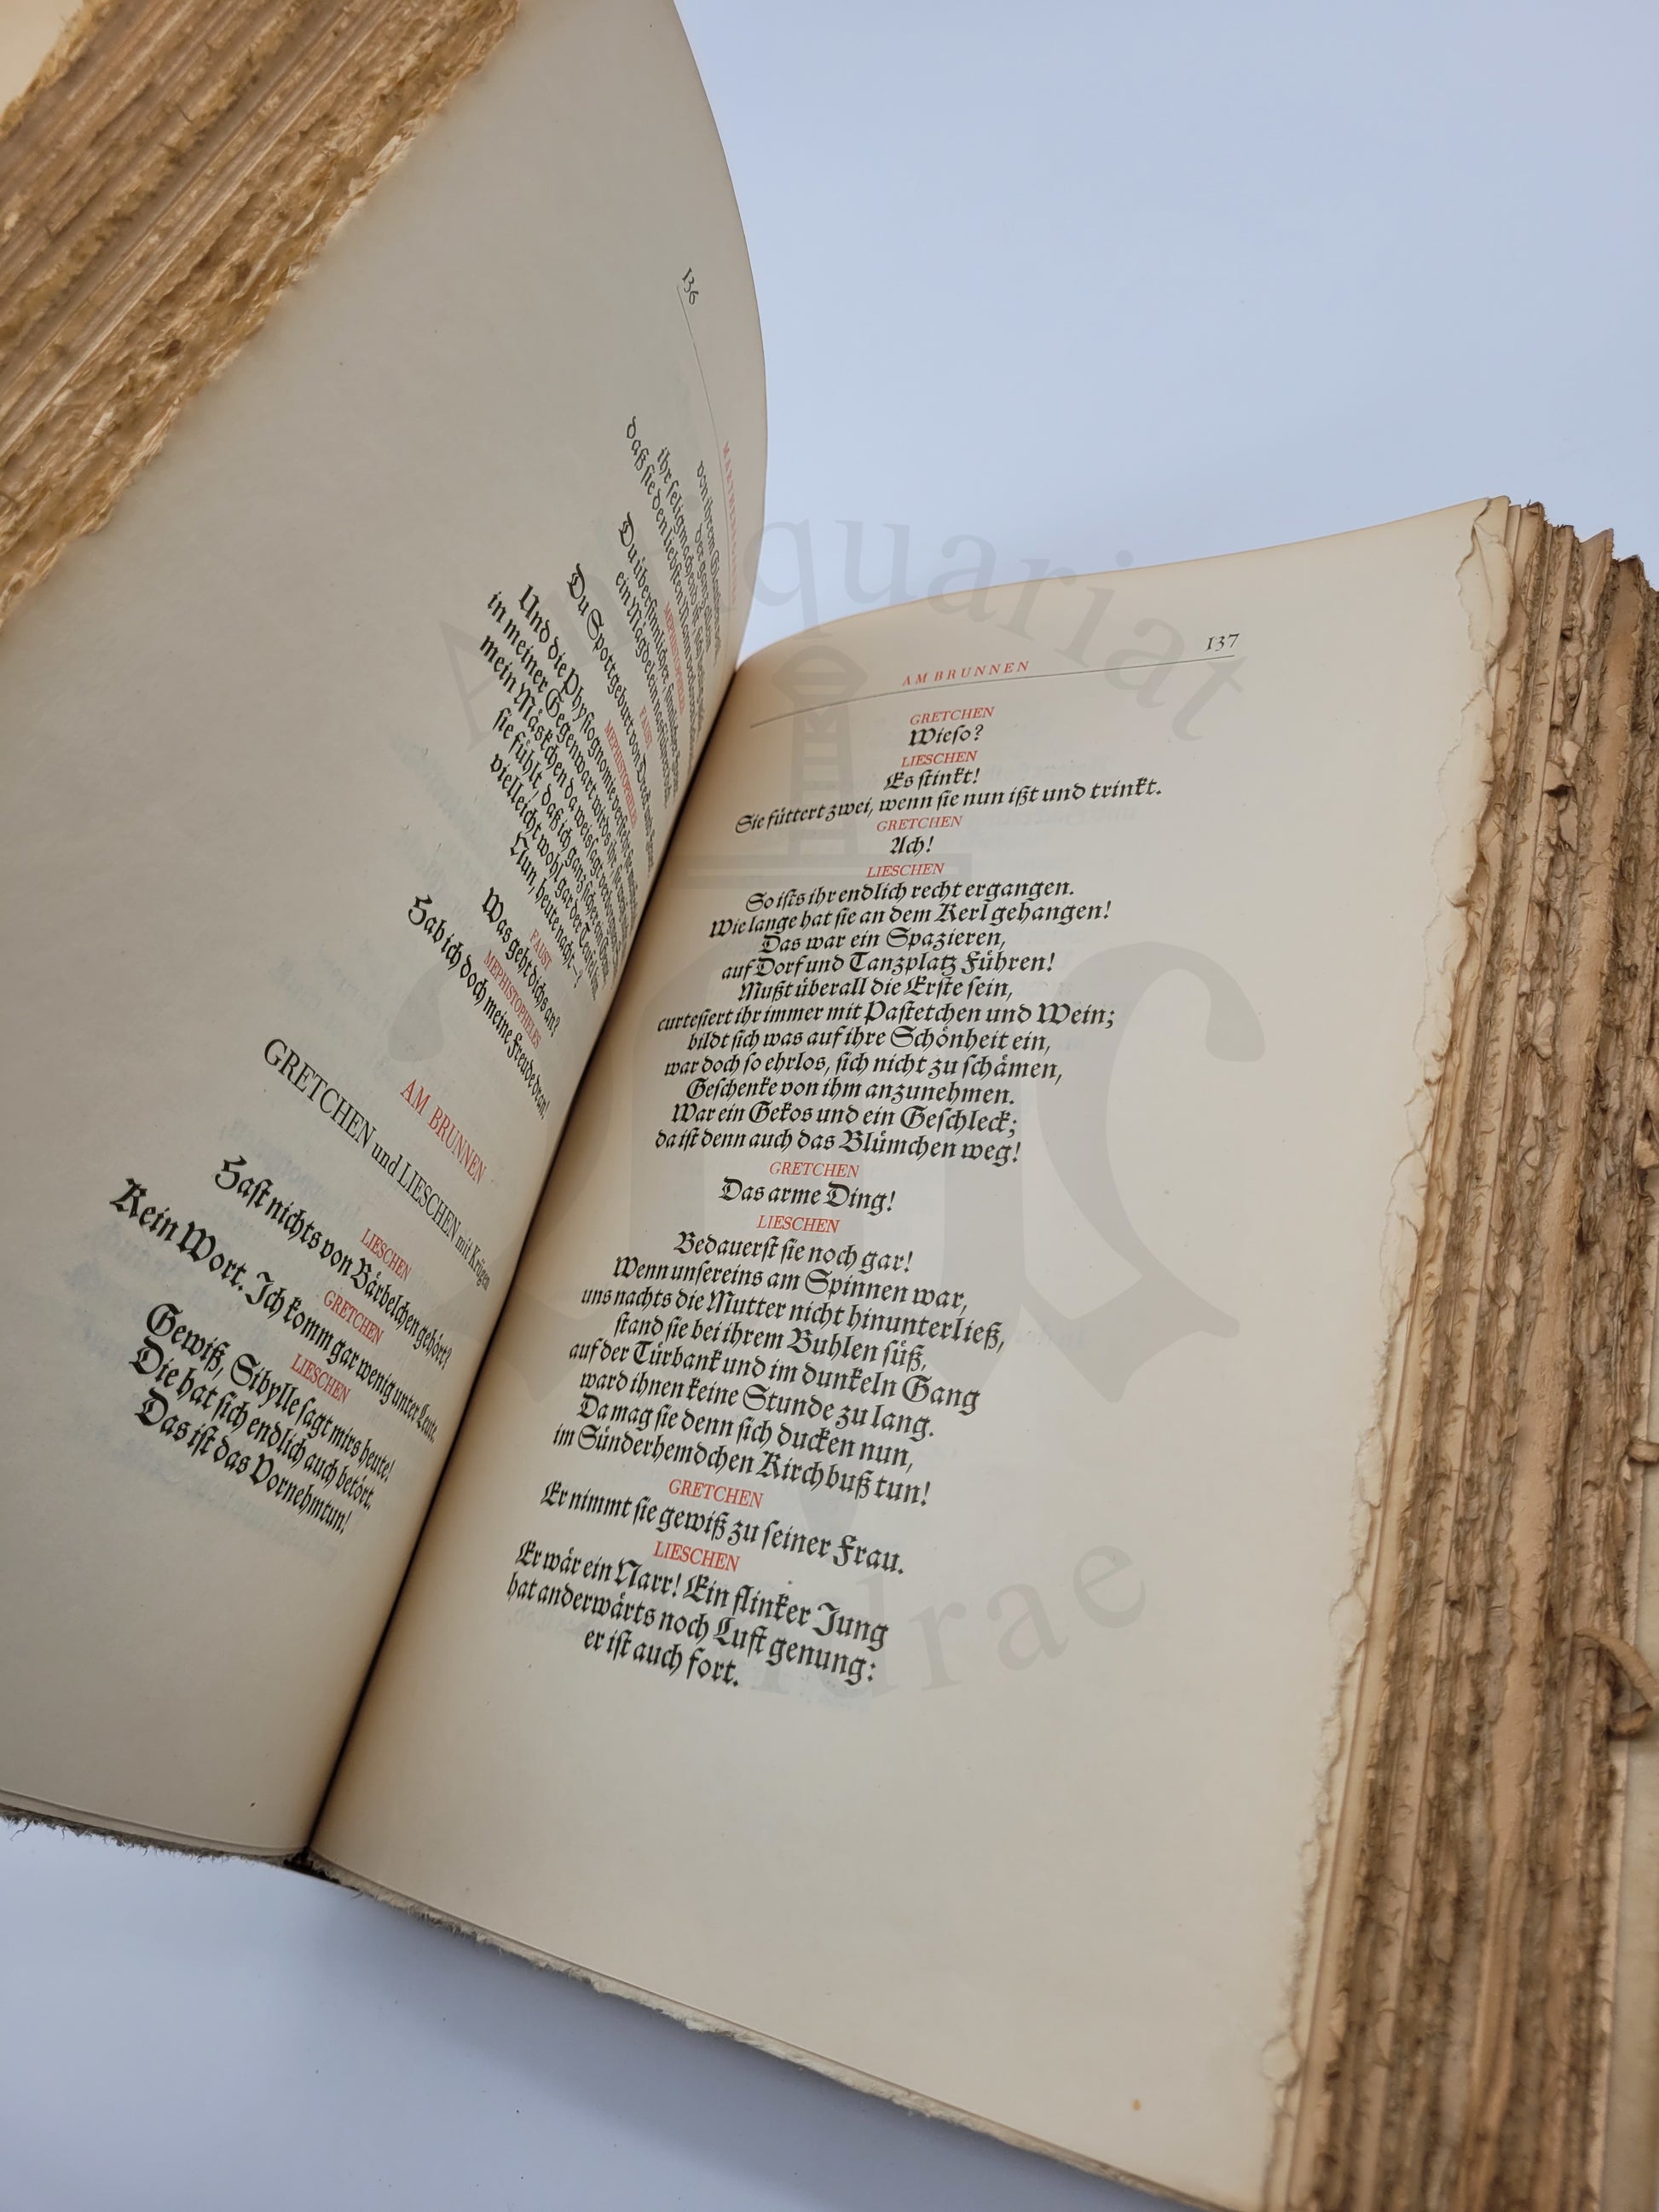 136
von ihrem Glauben voll,
der ganz allein
ihr seligmachend ist, sich
daß sie den liebsten Mann verloren
MEPHISTOPHELES
Du übersinnlicher, sinnlicher Freier,
ein Mägdelein nasführet dich.
FAUST
Du Spottgeburt von Dreck und Feuer!
MEPHISTOPHELES
Und die Physiognomie versteht sie
in meiner Gegenwart wirds ihr,
mein Mäskchen da weissagt verborgnen Sinn;
sie fühlt, daß ich ganz sicher ein Genie,
vielleicht wohl gar der Teufel bin.
Nun, heute nacht—?
FAUST
Was geht dichs an?
MEPHISTOPHELES
Hab ich doch meine Freude dran!
AM BRUNNEN
GRETCHEN und LIESCHEN mit Krügen
LIESCHEN
Hast nichts von Bärbelchen gehört?
GRETCHEN
Kein Wort. Ich komm gar wenig unter Leute.
LIESCHEN
Gewiß, Sibylle sagt mirs heute!
Die hat sich endlich auch betört.
Das ist das Vornehmtun!
137
AM BRUNNEN
GRETCHEN
Wieso?
LIESCHEN
Es stinkt!
Sie füttert zwei, wenn sie nun ißt und trinkt.
GRETCHEN
Ach!
LIESCHEN
So ists ihr endlich recht ergangen.
Wie lange hat sie an dem Kerl gehangen!
Das war ein Spazieren,
auf Dorf und Tanzplatz Führen!
Mußt überall die Erste sein,
curtesiert ihr immer mit Pastetchen und Wein;
bildt sich was auf ihre Schönheit ein,
war doch so ehrlos, sich nicht zu schämen,
Geschenke von ihm anzunehmen.
War ein Gekos und ein Geschleck;
da ist denn auch das Blümchen weg!
GRETCHEN
Das arme Ding!
LIESCHEN
Bedauerst sie noch gar!
Wenn unsereins am Spinnen war,
uns nachts die Mutter nicht hinunterließ,
stand sie bei ihrem Buhlen süß,
auf der Türbank und im dunkeln Gang
ward ihnen keine Stunde zu lang.
Da mag sie denn sich ducken nun,
im Sünderhemdchen Kirchbuß tun!
GRETCHEN
Er nimmt sie gewiß zu seiner Frau.
LIESCHEN
Er wär ein Narr! Ein flinker Jung
hat anderwärts noch Luft genung:
er ist auch fort.
Antiquariat